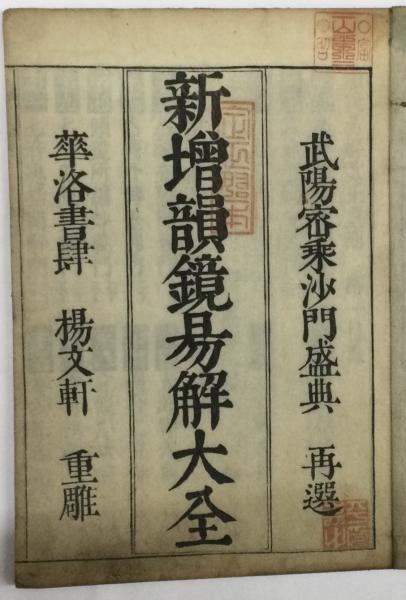 武陽密乗沙門盛典 再選
新增韻鏡易解大全
華洛書肆 楊文軒 重雕